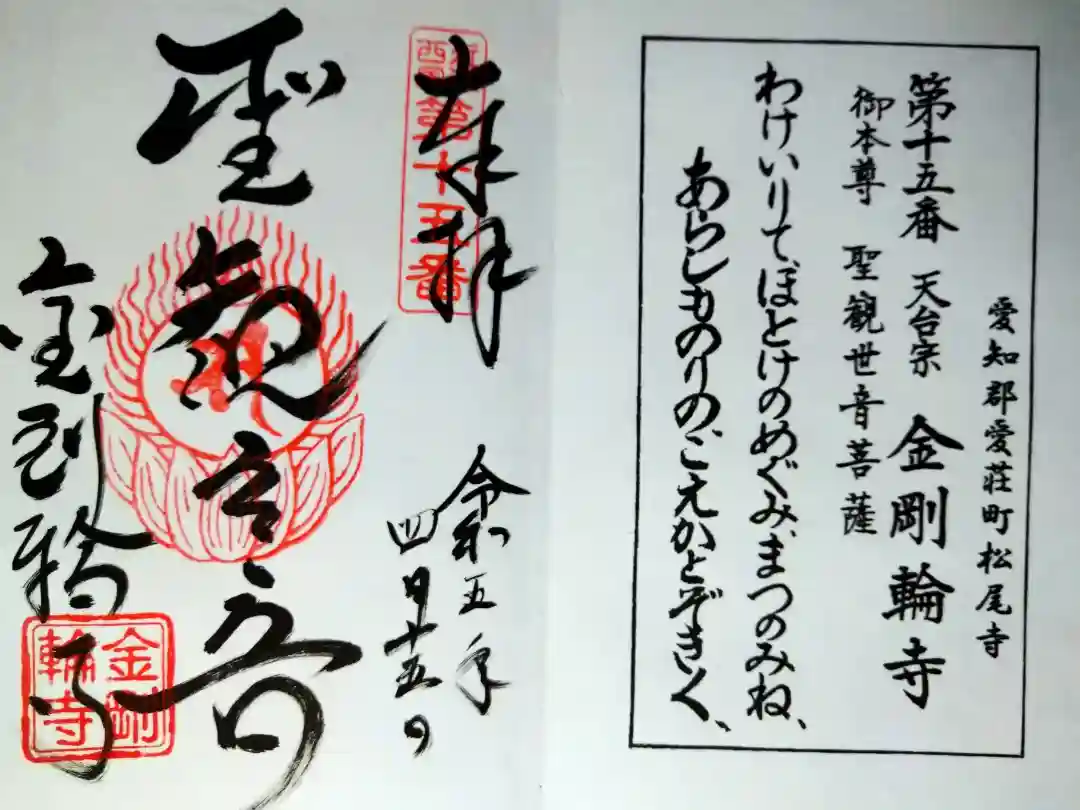 愛知郡愛荘町松尾寺
第十五番 天台宗 金剛輪寺
御本尊 聖観世音菩薩
わけいりて、ほとけのめぐみ、まつのみね、
あらしものりの、こえかとぞきく、
奉拝
第十五番
令和五年
四月十五日
聖観音
金剛輪寺
金剛
輪寺